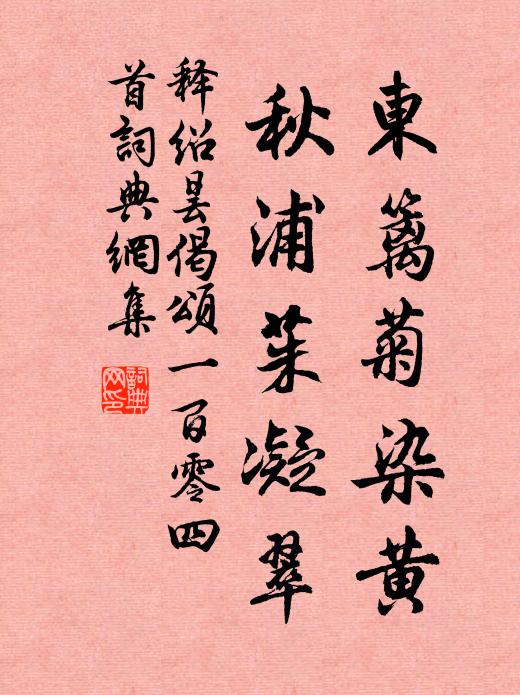 東籬菊染黄
秋浦茱凝翠
释紹昙偈頌一百零四
首詞典網集
詞典
网印